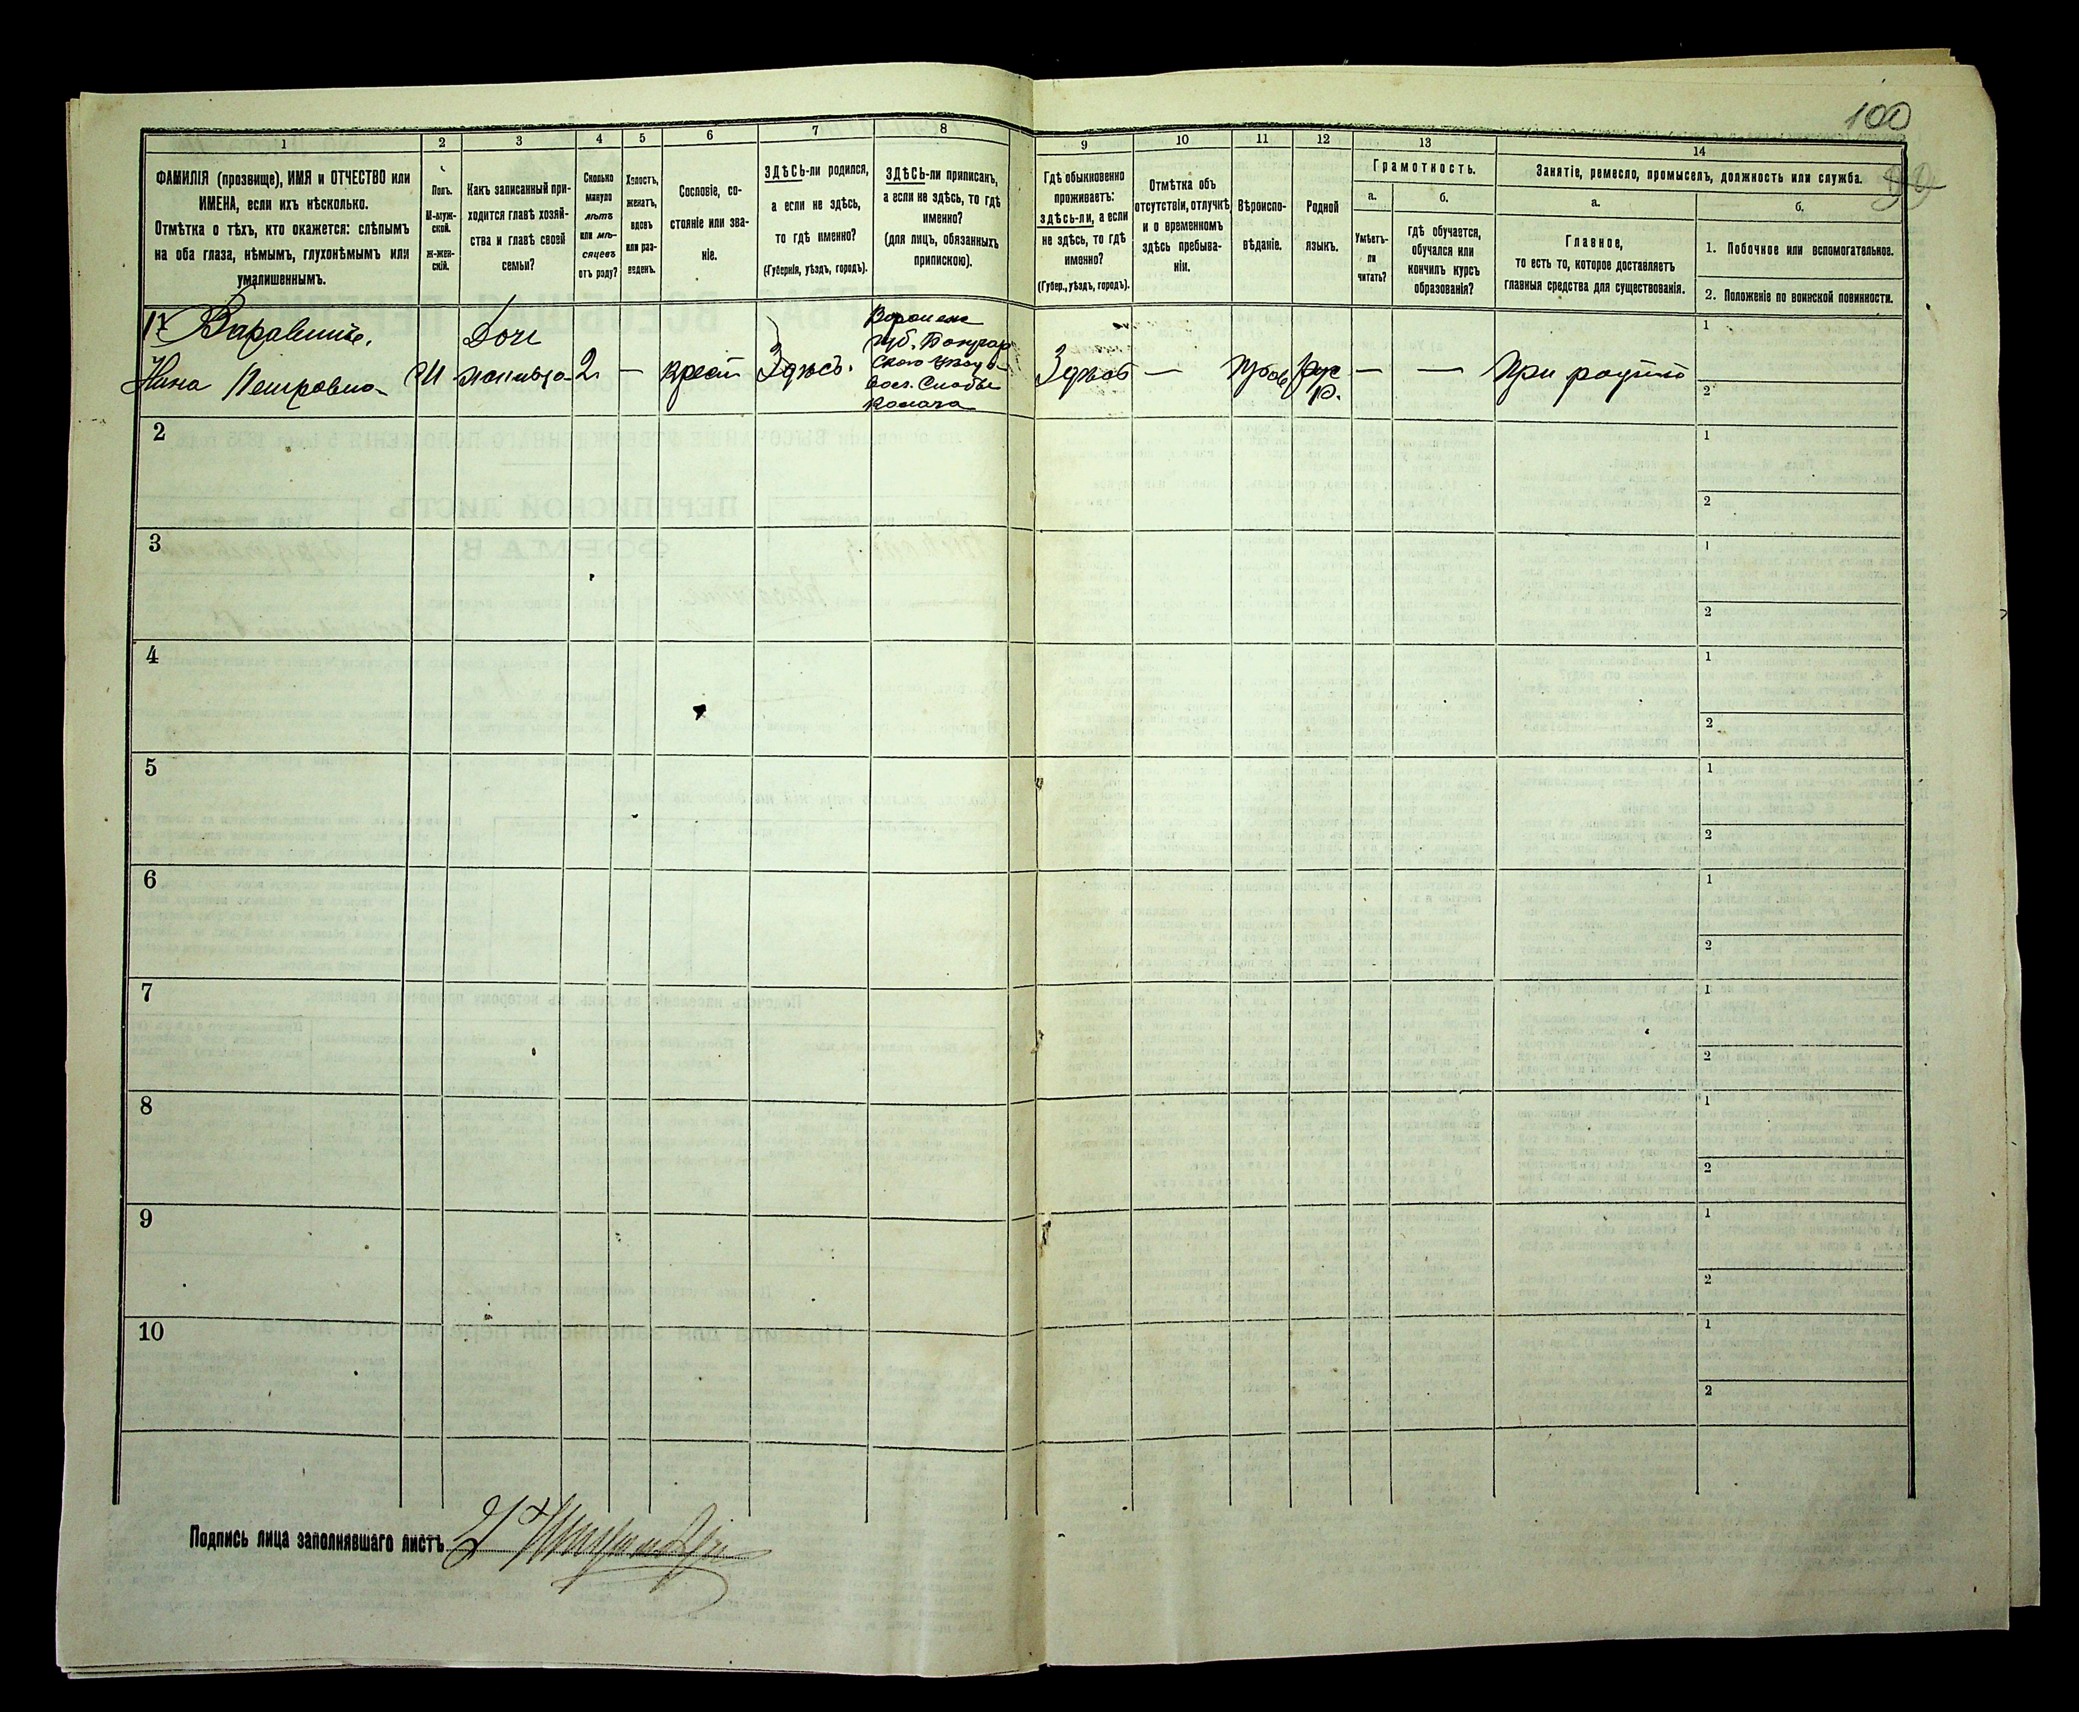 100
99
1
2
3
4
5
6
7
8
9
10
11
12
13
14
ФАМИЛІЯ (прозвище), ИМЯ и ОТЧЕСТВО или
ИМЕНА, если ихъ нѣсколько.
Отмѣтка о тѣхъ, кто окажется: слѣпымъ
на оба глаза, нѣмымъ, глухонѣмымъ или
умалишеннымъ.
Полъ.
М-муж-
ской.
ж-жен-
скій.
Какъ записанный при-
ходится главѣ хозяй-
ства и главѣ своей
семьи?
Сколько
минуло
лѣтъ
или мѣ-
сяцевъ
отъ роду?
Холостъ,
женатъ,
вдовъ
или раз-
веденъ.
Сословіе, со-
стояніе или зва-
ніе.
ЗДѢСЬ-ли родился,
а если не здѣсь,
то гдѣ именно?
(Губернія, уѣздъ, городъ).
ЗДѢСЬ-ли приписанъ,
а если не здѣсь, то гдѣ
именно?
(для лицъ, обязанныхъ
припискою).
Гдѣ обыкновенно
проживаетъ:
здѣсь-ли, а если
не здѣсь, то гдѣ
именно?
(Губер., уѣздъ, городъ).
Отмѣтка объ
отсутствіи, отлучкѣ
и о временномъ
здѣсь пребыва-
ніи.
Вѣроиспо-
вѣданіе.
Родной
языкъ.
Грамотность.
а.
Умѣетъ-
ли
читать?
б.
гдѣ обучается,
обучался или
кончилъ курсъ
образованія?
Занятіе, ремесло, промыселъ, должность или служба.
а.
Главное,
то есть то, которое доставляетъ
главныя средства для существованія.
б.
1. Побочное или вспомогательное.
2. Положеніе по воинской повинности.
Нина Петровна
2
крест
Здѣсь.
Воронеж
губ.
Здѣсь
—
—
—
1
2
2
1
2
3
1
2
4
1
2
5
1
2
6
1
2
7
1
2
8
1
2
9
1
2
10
1
2
Подпись лица заполнявшаго листъ